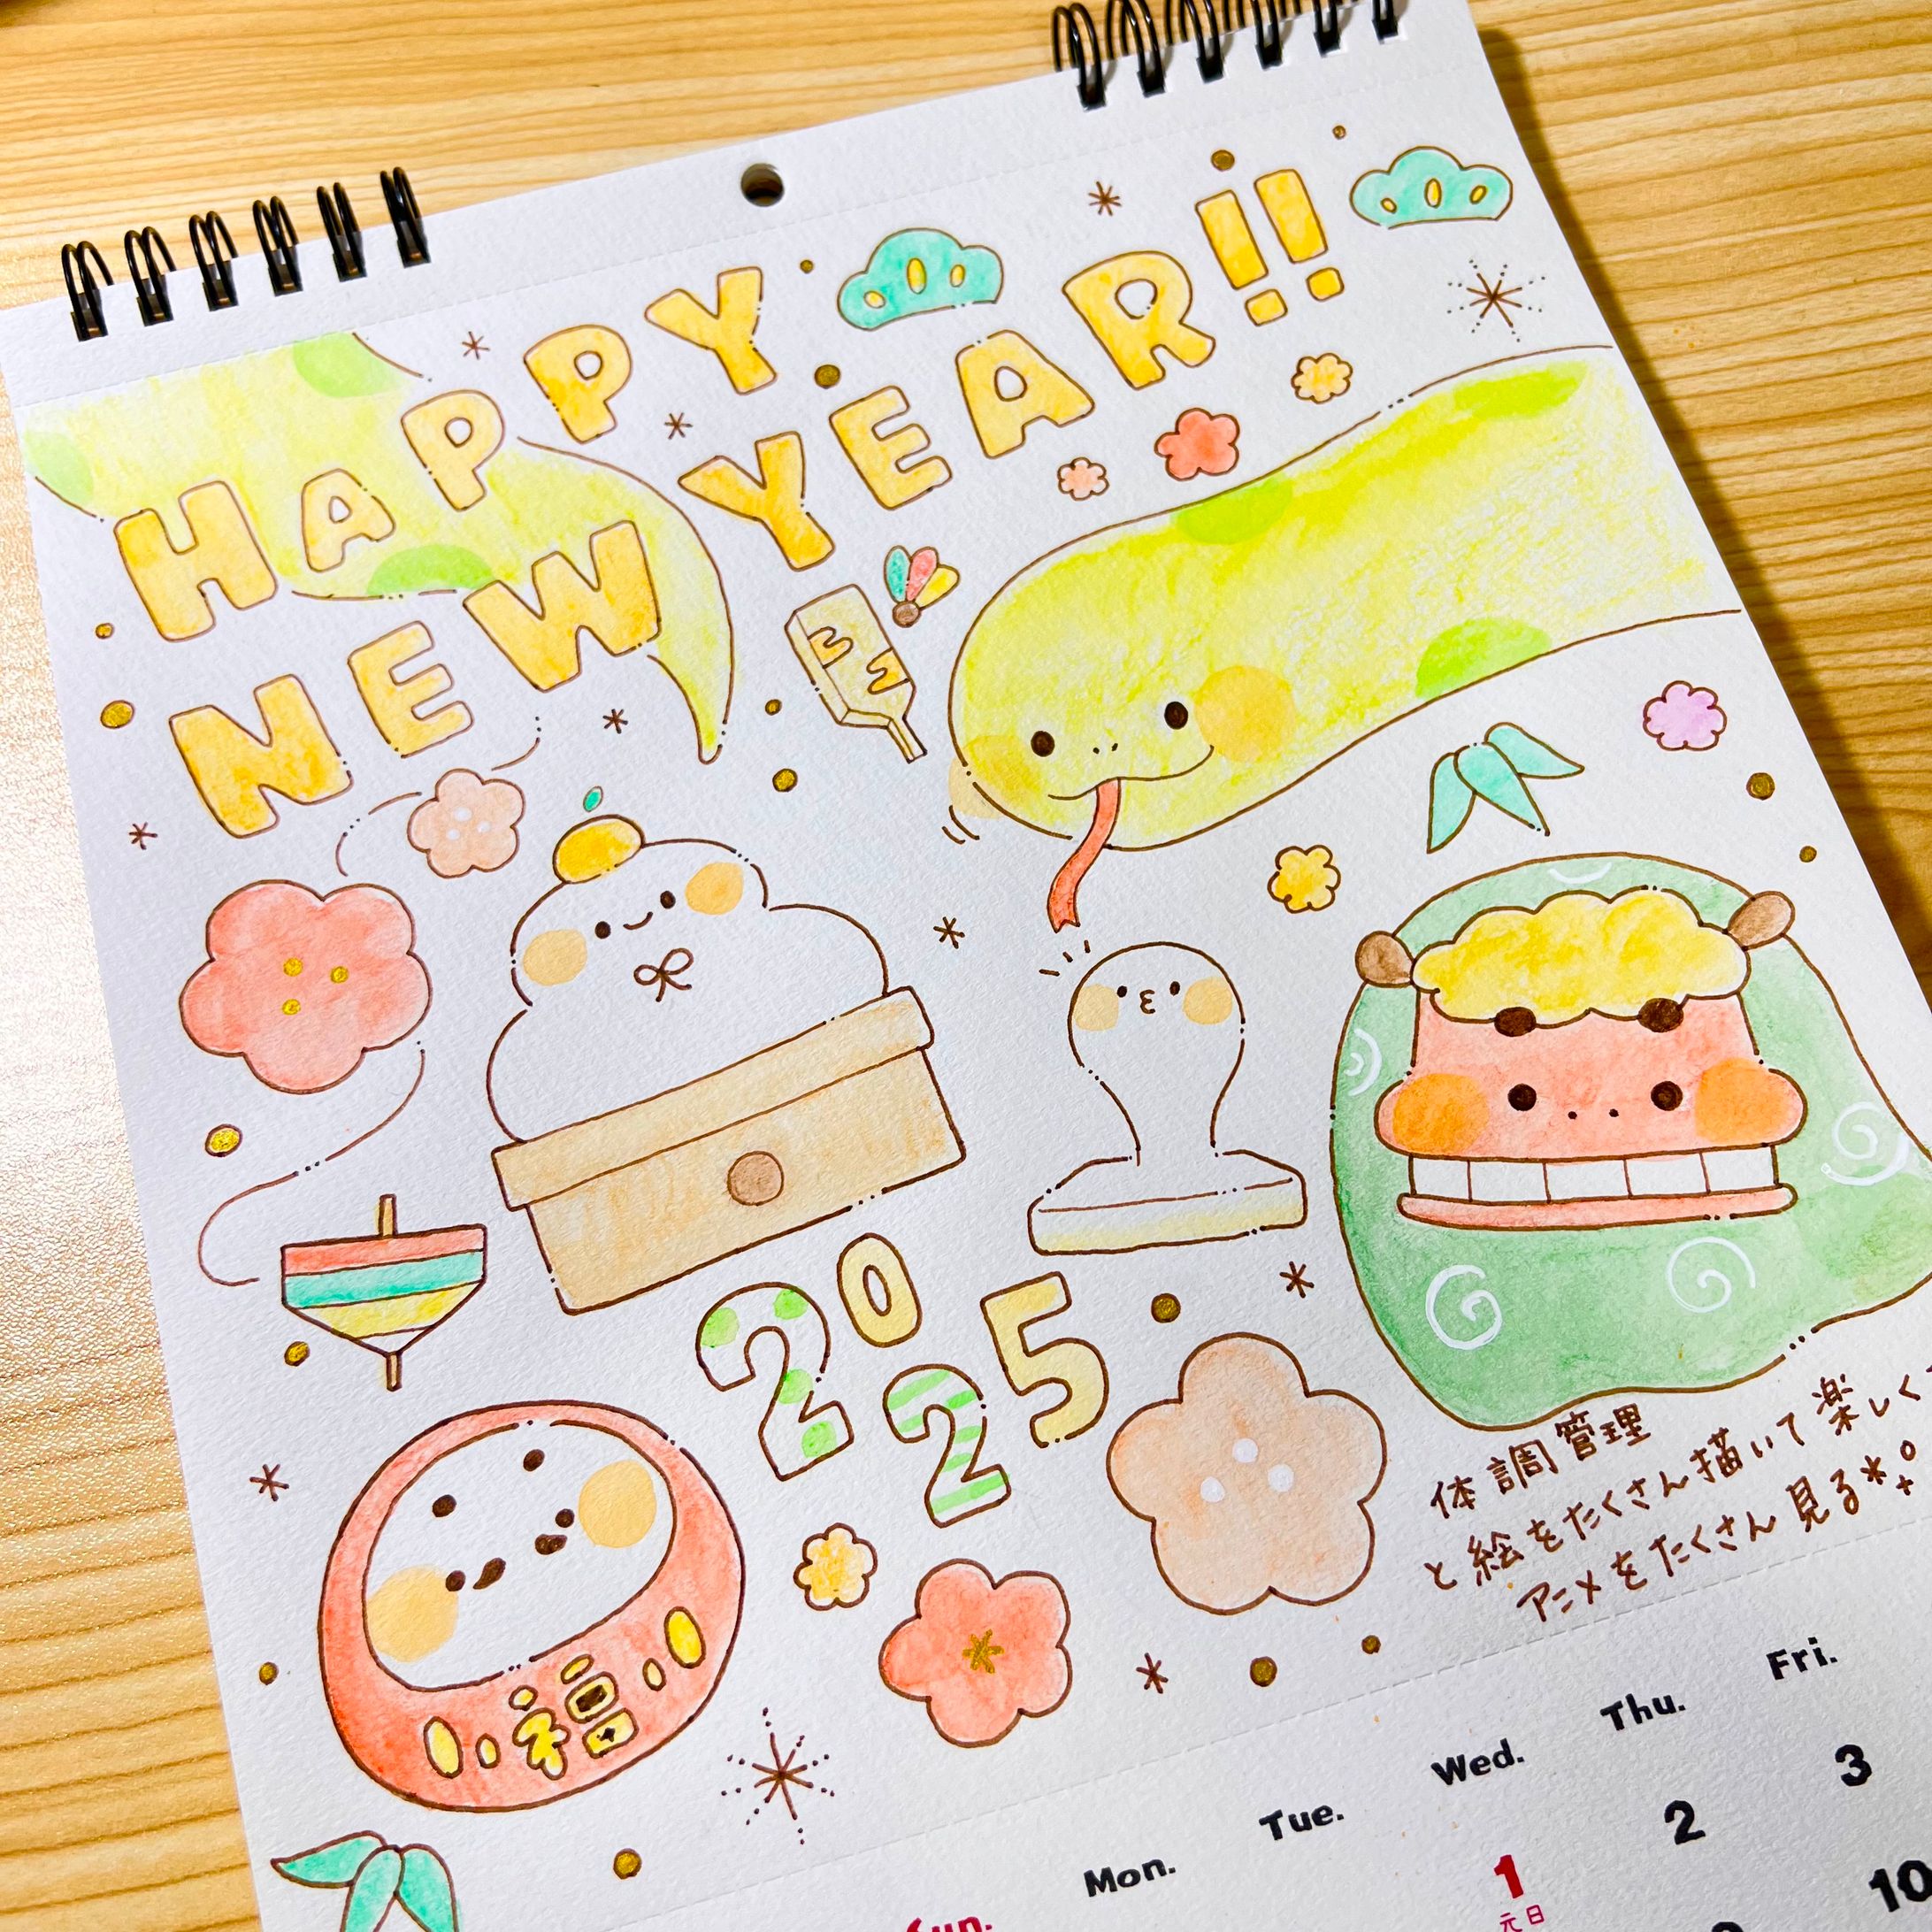 HAPPY
NEW YEAR!!
2025
福
体調管理
と絵をたくさん描いて楽しく
アニメをたくさん見る
Sun. Mon. Tue. Wed. Thu. Fri.
1 2 3
元日
10